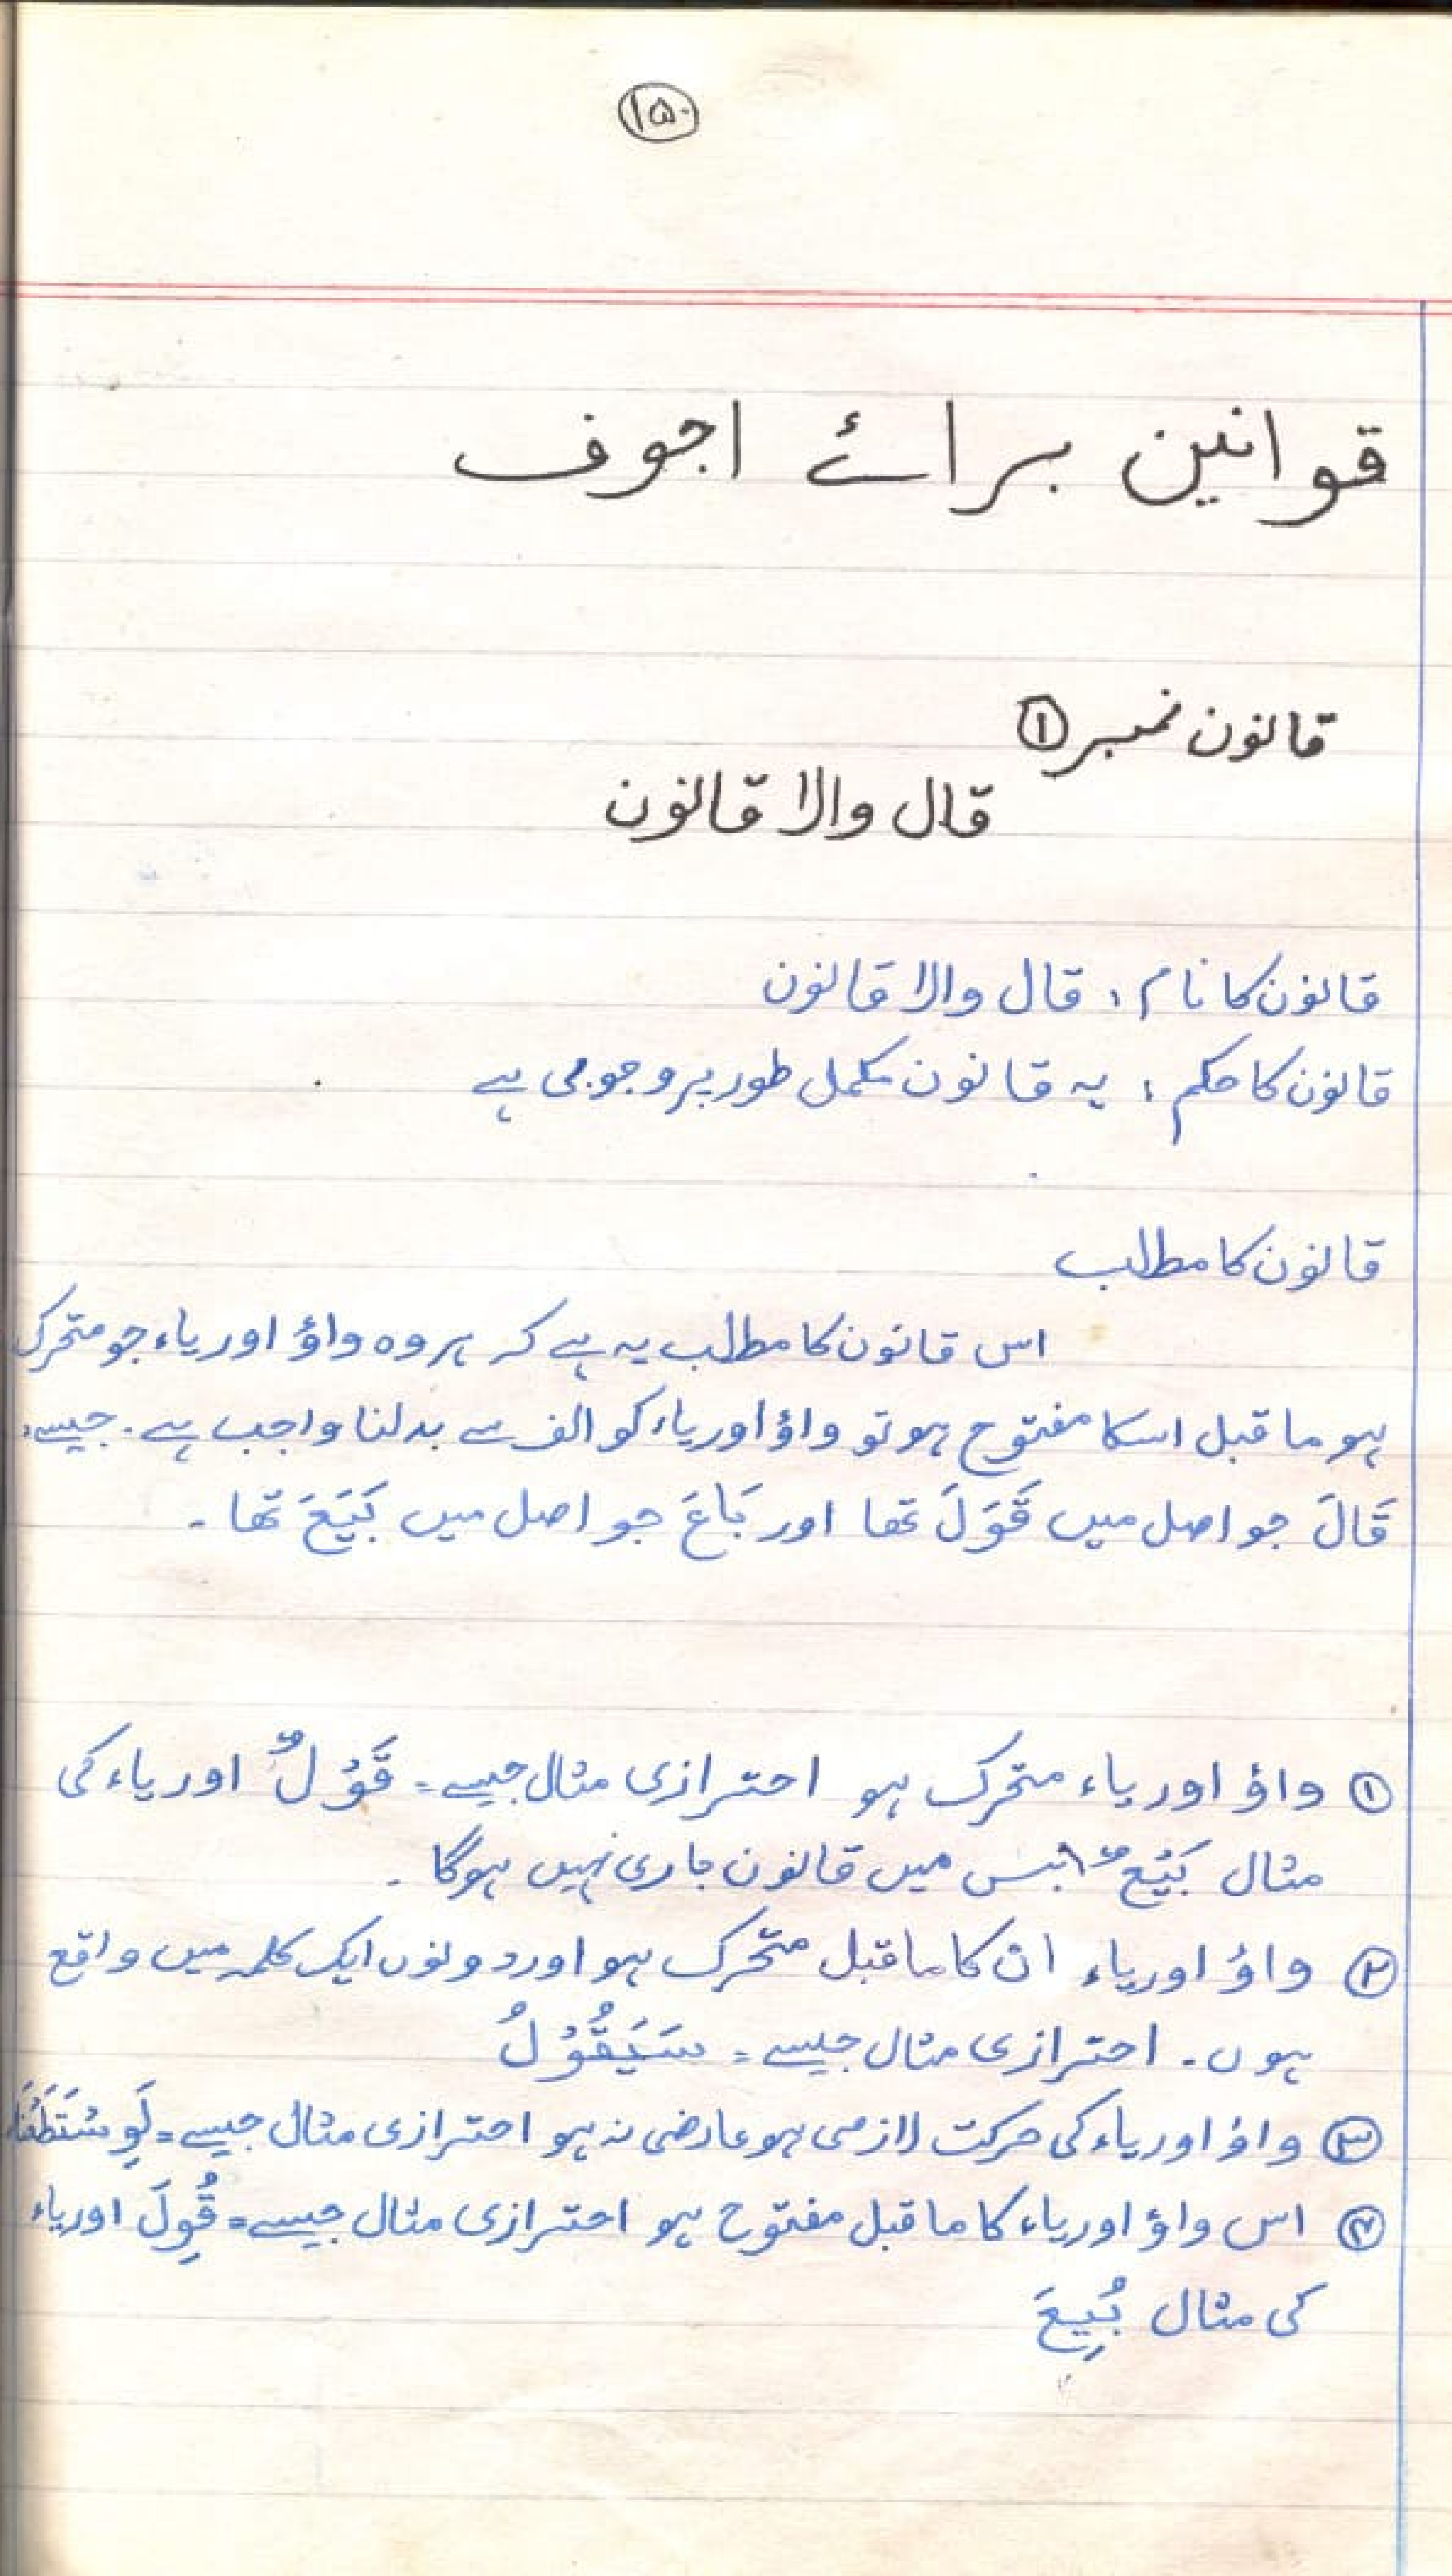 ۱۵۰
قوانین برائے اجوف
قانون نمبر ۱
قال والا قانون
قانون کا نام: قال والا قانون
قانون کا حکم: یہ قانون مکمل طور پر وجوبی ہے
قانون کا مطلب
اس قانون کا مطلب یہ ہے کہ ہر وہ واؤ اور یاء جو متحرک
ہو ما قبل اسکا مفتوح ہو تو واؤ اور یاء کو الف سے بدلنا واجب ہے۔ جیسے:
قَالَ جو اصل میں قَوَلَ تھا اور بَاعَ جو اصل میں بَیَعَ تھا۔
۱ واؤ اور یاء متحرک ہو احترازی مثال جیسے = قَوْلٌ اور یاء کی
مثال بَیْعٌ میں قانون جاری نہیں ہوگا۔
۲ واؤ اور یاء ان کا ما قبل متحرک ہو اور دونوں ایک کلمہ میں واقع
ہوں۔ احترازی مثال جیسے = سَیَقُوْلُ
۳ واؤ اور یاء کی حرکت لازمی ہو عارضی نہ ہو احترازی مثال جیسے = لَوِ
۴ اس واؤ اور یاء کا ما قبل مفتوح ہو احترازی مثال جیسے = قُوِلَ اور یاء
کی مثال بُیِعَ